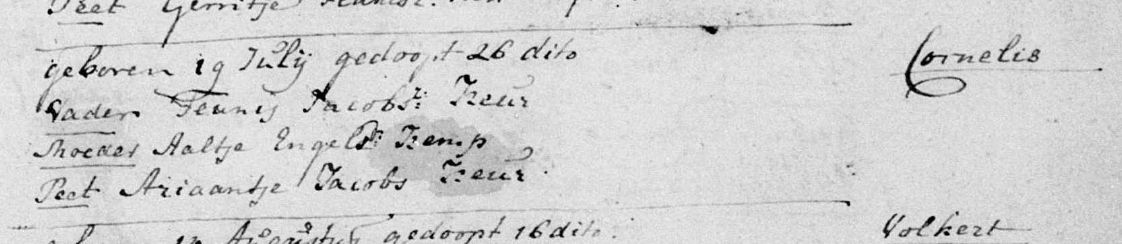 Peet Gerritje
geboren 19 Julij gedoopt 26 dito Cornelis
Vader Teunis Jacobsz: Keur
Moeder Aaltje Engelsdr Kemp
Peet Ariaantje Jacobs Keur
Augustus gedoopt 16 dito: Volkert